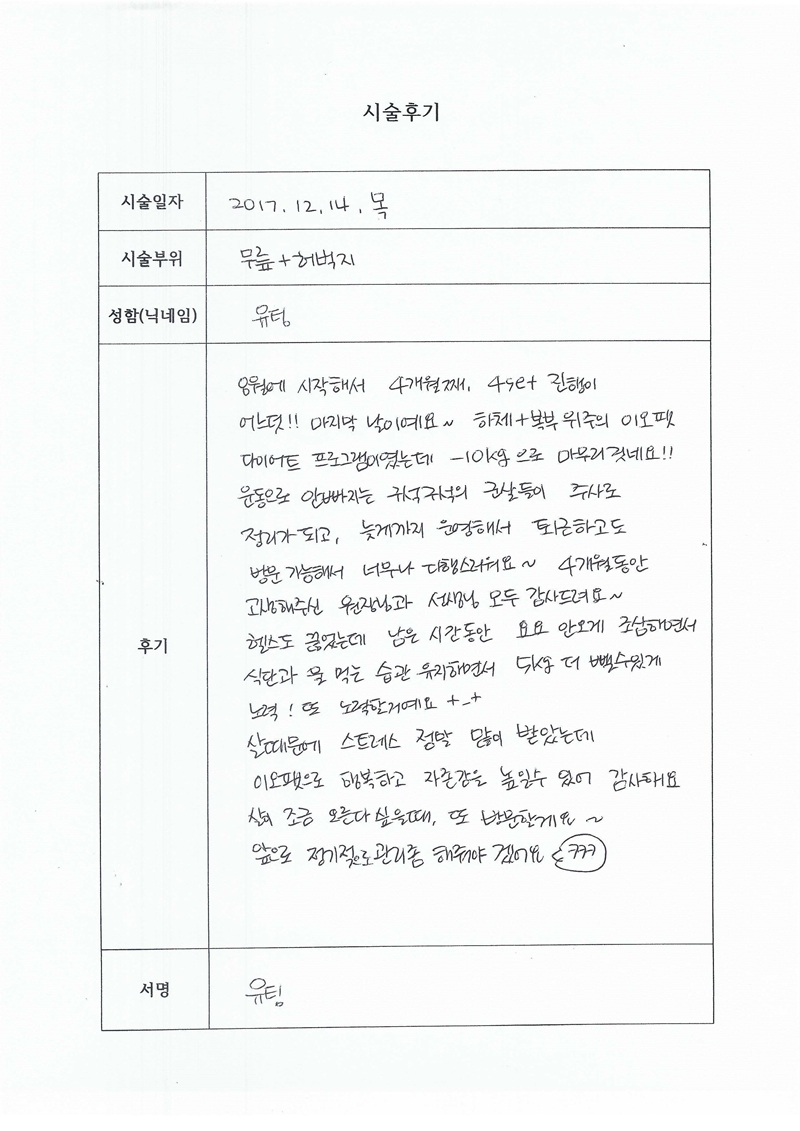 시술후기
시술일자 2017. 12. 14. 목
시술부위 무릎+허벅지
성함(닉네임) 유팀
후기
8월에 시작해서 4개월째, 4set 진행이
어느덧!! 마지막 날이예요~ 하체+복부 위주의 이오팻
다이어트 프로그램이였는데 -10kg으로 마무리 짓네요!!
운동으로 안빠지는 구석구석의 군살들이 주사로
정리가 되고, 늦게까지 운영해서 퇴근하고도
방문 가능해서 너무나 다행스러워요~ 4개월동안
고생해주신 원장님과 선생님 모두 감사드려요~
헬스도 끊었는데 남은 시간동안 요요 안오게 조심하면서
식단과 물 먹는 습관 유지하면서 5kg 더 뺄수있게
노력! 또 노력할거예요 +_+
살때문에 스트레스 정말 많이 받았는데
이오팻으로 행복하고 자존감을 높일수 있어 감사해요
살이 조금 오른다 싶을때, 또 방문할게요~
앞으로 정기적으로관리좀 해줘야 겠어요 ㅋㅋㅋ
서명 유팀